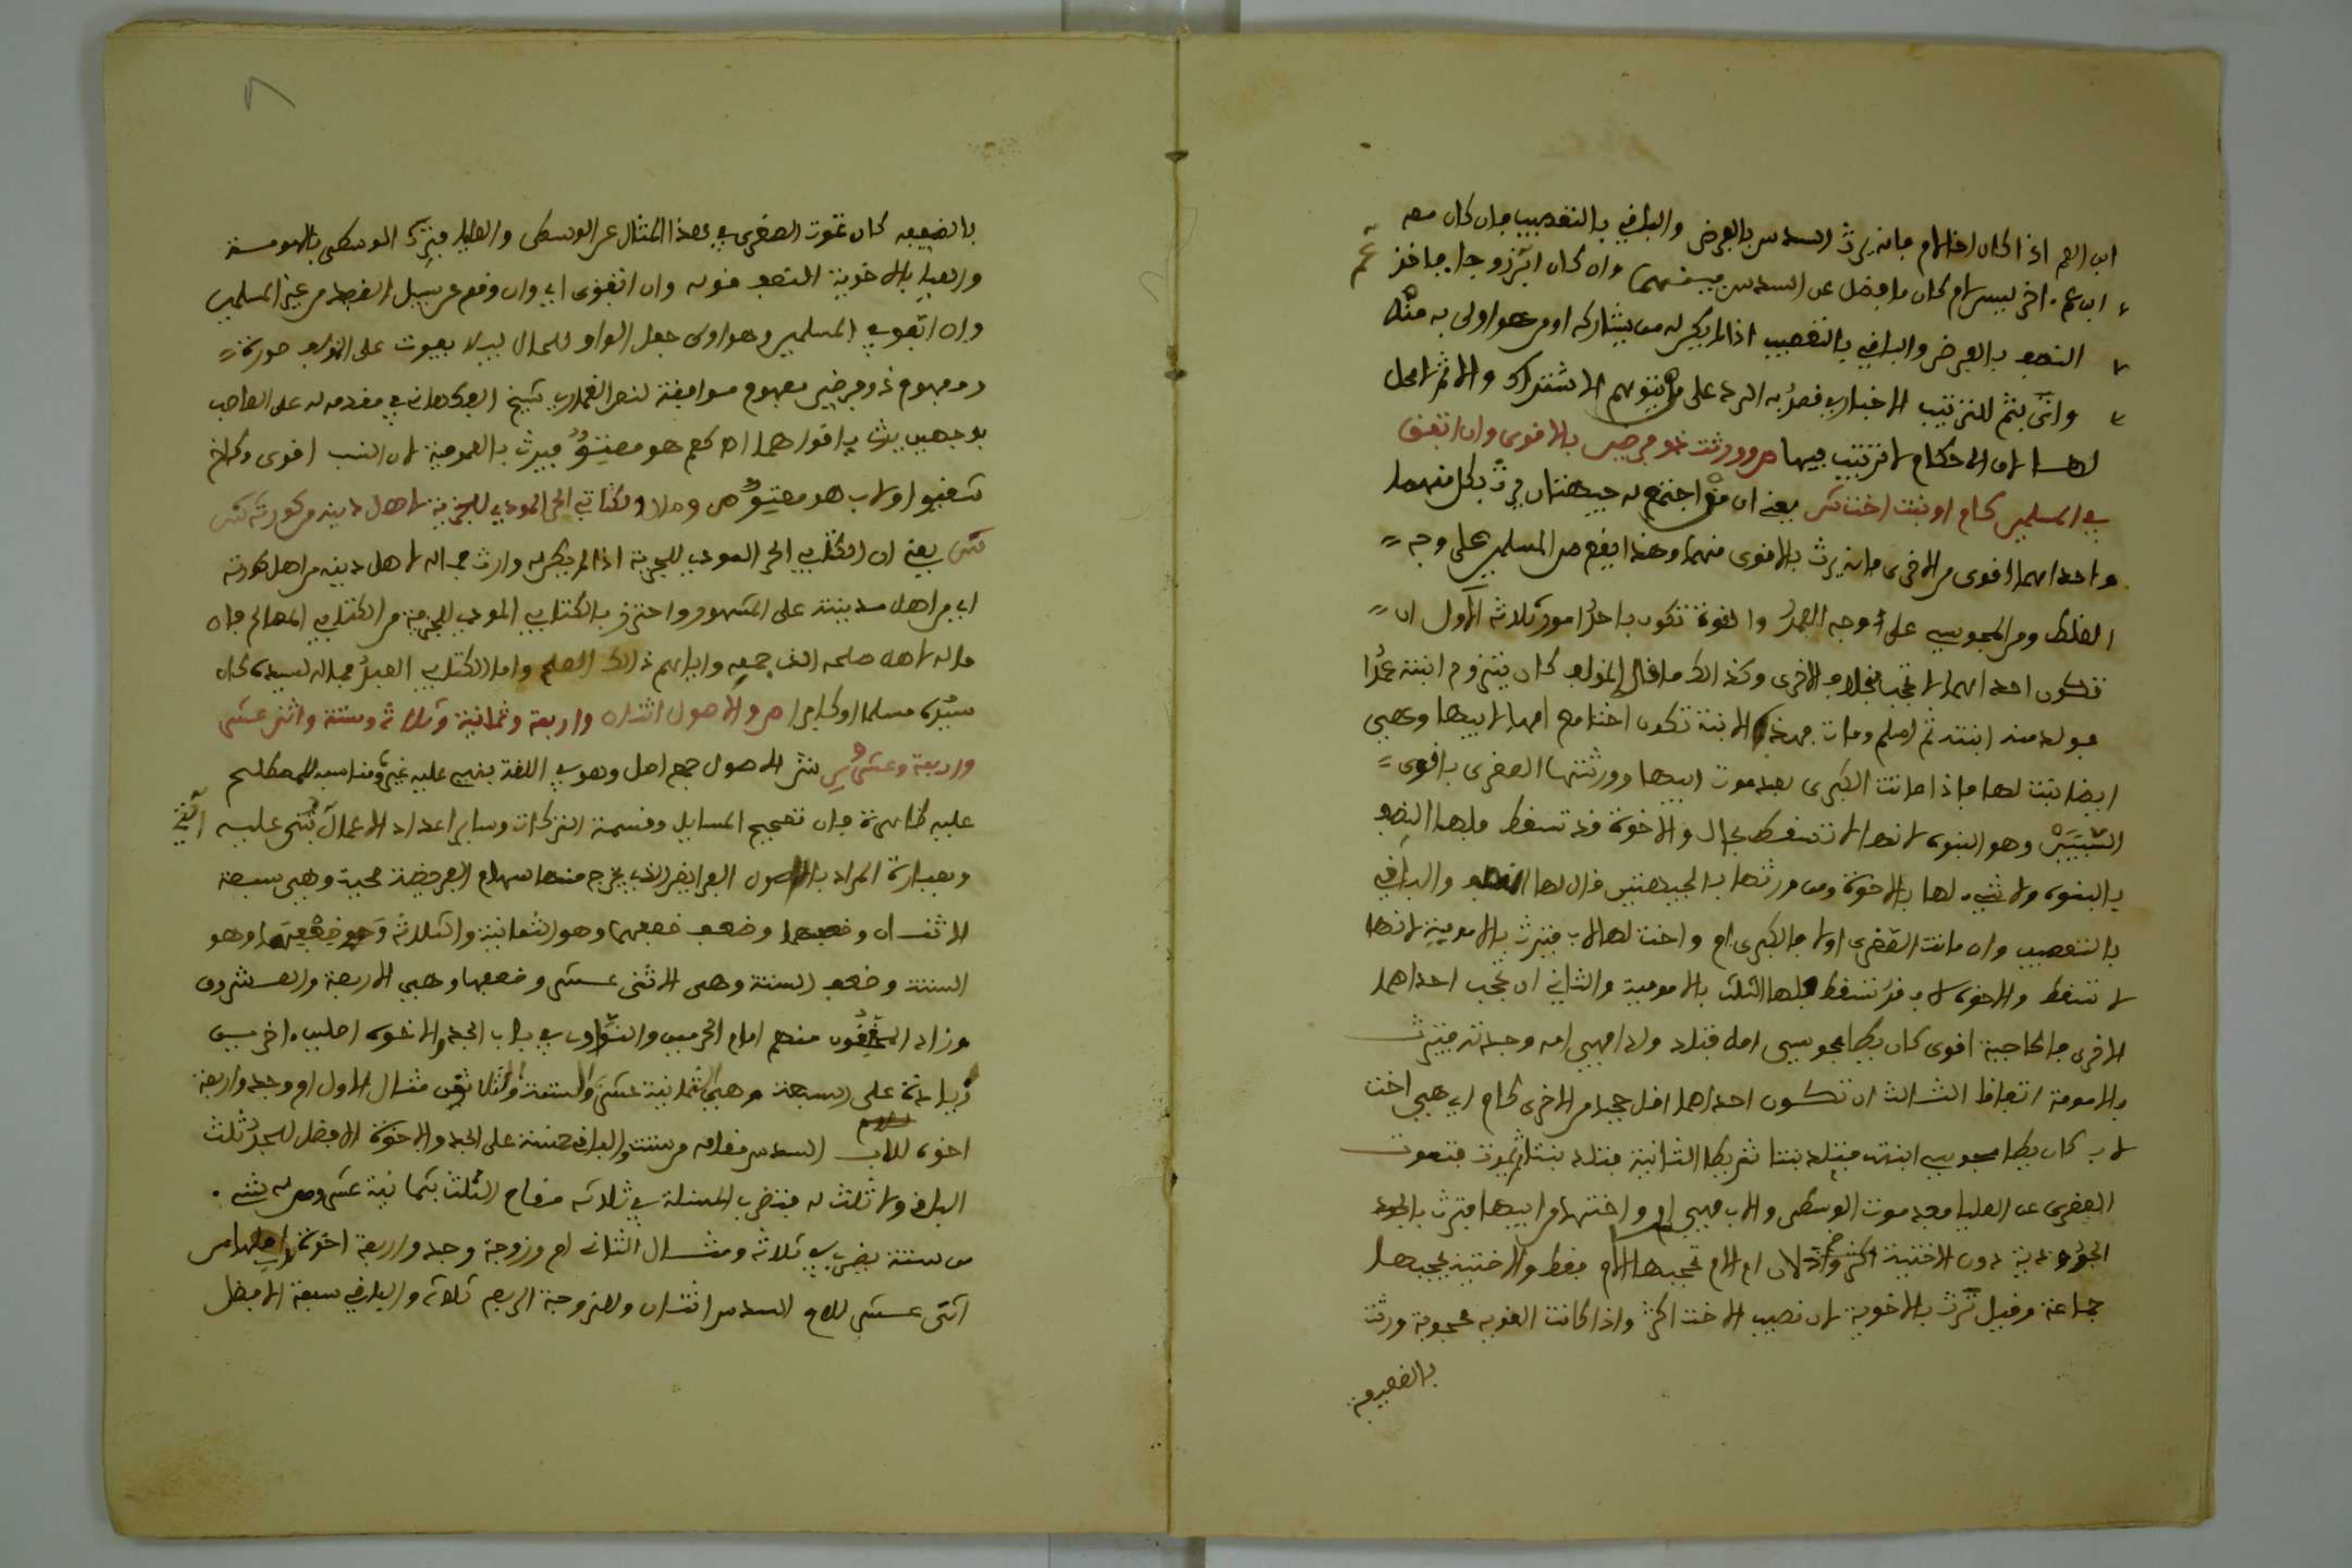 ابن العم اذا كان اخا لام فانه يرث السدس بالفرض والباقي بالتعصيب فان كان معه
ابن عم اخر ليس لام كان ما فضل عن السدس بينهما وان كان ابن زوجا فاخذ
عم
النصف بالفرض والباقي بالتعصيب اذا لم يكن له من يشاركه او من هو اولى به منه
واتى بثم للترتيب الاخباري فصد به الرد على من يتوهم الاشتراك والا ثم لا محل
لها لان الاحكام لا ترتيب فيها ص وورث ذو فرضين بالاقوى وان اتفق
في المسلمين كام او بنت اخت ش يعني ان من اجتمع له جهتان يرث بكل منهما
واحداهما اقوى من الاخرى فانه يرث بالاقوى منهما وهذا يقع من المسلمين على وجه
الغلط ومن المجوس على وجه العمد والقوة تكون باحد امور ثلاثة الاول ان
تكون احداهما لا تحجب بخلاف الاخرى وكذالك ما قال المؤلف كان يتزوج ابنته عمدا
فولد منه ابنته ثم اسلم ومات فهذه الابنة تكون اختا مع امها لابيها وهي
ايضا بنت لها فاذا ماتت الكبرى بعد موت ابيها وورثتها الصغرى باقوى
السببين وهو البنوة لانها لا تسقط بحال والاخوة قد تسقط فلها النصف
بالبنوة ولا شيء لها بالاخوة ومن ورثها بالجهتين قال لها النصف والباقي
بالتعصيب وان ماتت الصغرى اولا فالكبرى ام واخت لها لاب فترث بالامومة لانها
لا تسقط والاخوة لاب قد تسقط فلها الثلث بالامومة والثاني ان تحجب احداهما
الاخرى فالحاجبة اقوى كان يطا مجوسي امه فتلد ولدا فهي امه وجدته فترث
بالامومة اتفاقا الثالث ان تكون احداهما اقل حجبا من الاخرى كام اي هي اخت
لاب كان يطا مجوسي ابنته فتلد بنتا ثم يطا الثانية فتلد بنتا ثم يموت فتموت
الصغرى عن العليا بعد موت الوسطى والاب فهي ام امها واختها من ابيها فترث بالجد
الجدودية دون الاختية لان ام الام تحجبها الام فقط والاختية يحجبها
جماعة وقيل ترث بالاخوية لان نصيب الاخت اكثر واذا كانت القوية محجوبة ورثت
بالضعيفة
بالضعيفة كان تموت الصغرى في هذا المثال عن الوسطى والعليا فترث الوسطى بالامومة
والعليا بالاخوية النصف قوله وان اتفق اي وان وقع على سبيل الغلط من غير المسلمين
وان اتفق في المسلمين وهو اولى جعل الواو للحال ليلا يفوت على المؤلف صورة
ومفهوم ذو فرضين مفهوم موافقة لنص الغماري شيخ الفكهاني في مقدمته له على العاصب
بوجهين يرث باقواهما اذ كعم هو معتق فيرث بالعمومة لان النسب اقوى وكاخ
شقيق او لاب هو معتق ص ومال الكتابي الحر المودي للجزية لاهل دينه من كورته ش
ش يعني ان الكتابي الحر المودي للجزية اذا لم يكن له وارث فماله لاهل دينه من اهل كورته
اي من اهل مدينته على المشهور واحترز بالكتابي المودي للجزية من الكتابي المصالح فان
ماله لاهل صلحه الذين جمعه واياهم ذالك الصلح واما الكتابي العبد فماله لسيده كان
سيده مسلما او كافرا ص والاصول اثنان واربعة وثمانية وثلاثة وستة واثني عشر
واربعة وعشرون ش الاصول جمع اصل وهو في اللغة ينبني عليه غيره ومناسبته للمصطلح
عليه ظاهرة فان تصحيح المسايل وقسمة التركات وساير اعداد الاعمال تبنى عليه
اكثر
وبعبارة المراد بالاصول الفرايض التي يخرج منها سهام الفريضة صحيحة وهي سبعة
الاثنان وضعفهما وضعف ضعفهما وهو الثمانية والثلاثة وضعفها وهو
الستة وضعف الستة وهي الاثنى عشر وضعفها وهي الاربعة والعشرون
وزاد المحققون منهم امام الحرمين والنواوي في باب الجد والاخوة اصلين اخرين
زيادة على السبعة وهي الثمانية عشر والستة والثلاثون مثال الاول ام وجد واربعة
اخوة للاب السدس مقامه من ستة والباقي خمسة على الجد والاخوة الافضل للجد ثلث
الباقي ولا ثلث له فتضرب المسئلة في ثلاثة مقام الثلث بثمانية عشر ومن له شيء
من ستة يضرب في ثلاثة ومثال الثاني ام وزوجة وجد واربعة اخوة اصلها من
اثني عشر للام السدس اثنان وللزوجة الربع ثلاثة والباقي سبعة الافضل